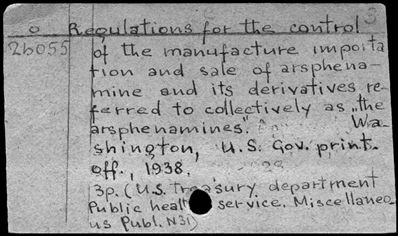 o Regulations for the control 3
2b055 of the manufacture importa
tion and sale of arsphena-
mine and its derivatives re-
ferred to collectively as „the
arsphenamines". Wa-
shington, U.S. Gov. print.
off., 1938.
3p. (U.S. Treasury department
Public health service. Miscellaneo
us Publ. N31)